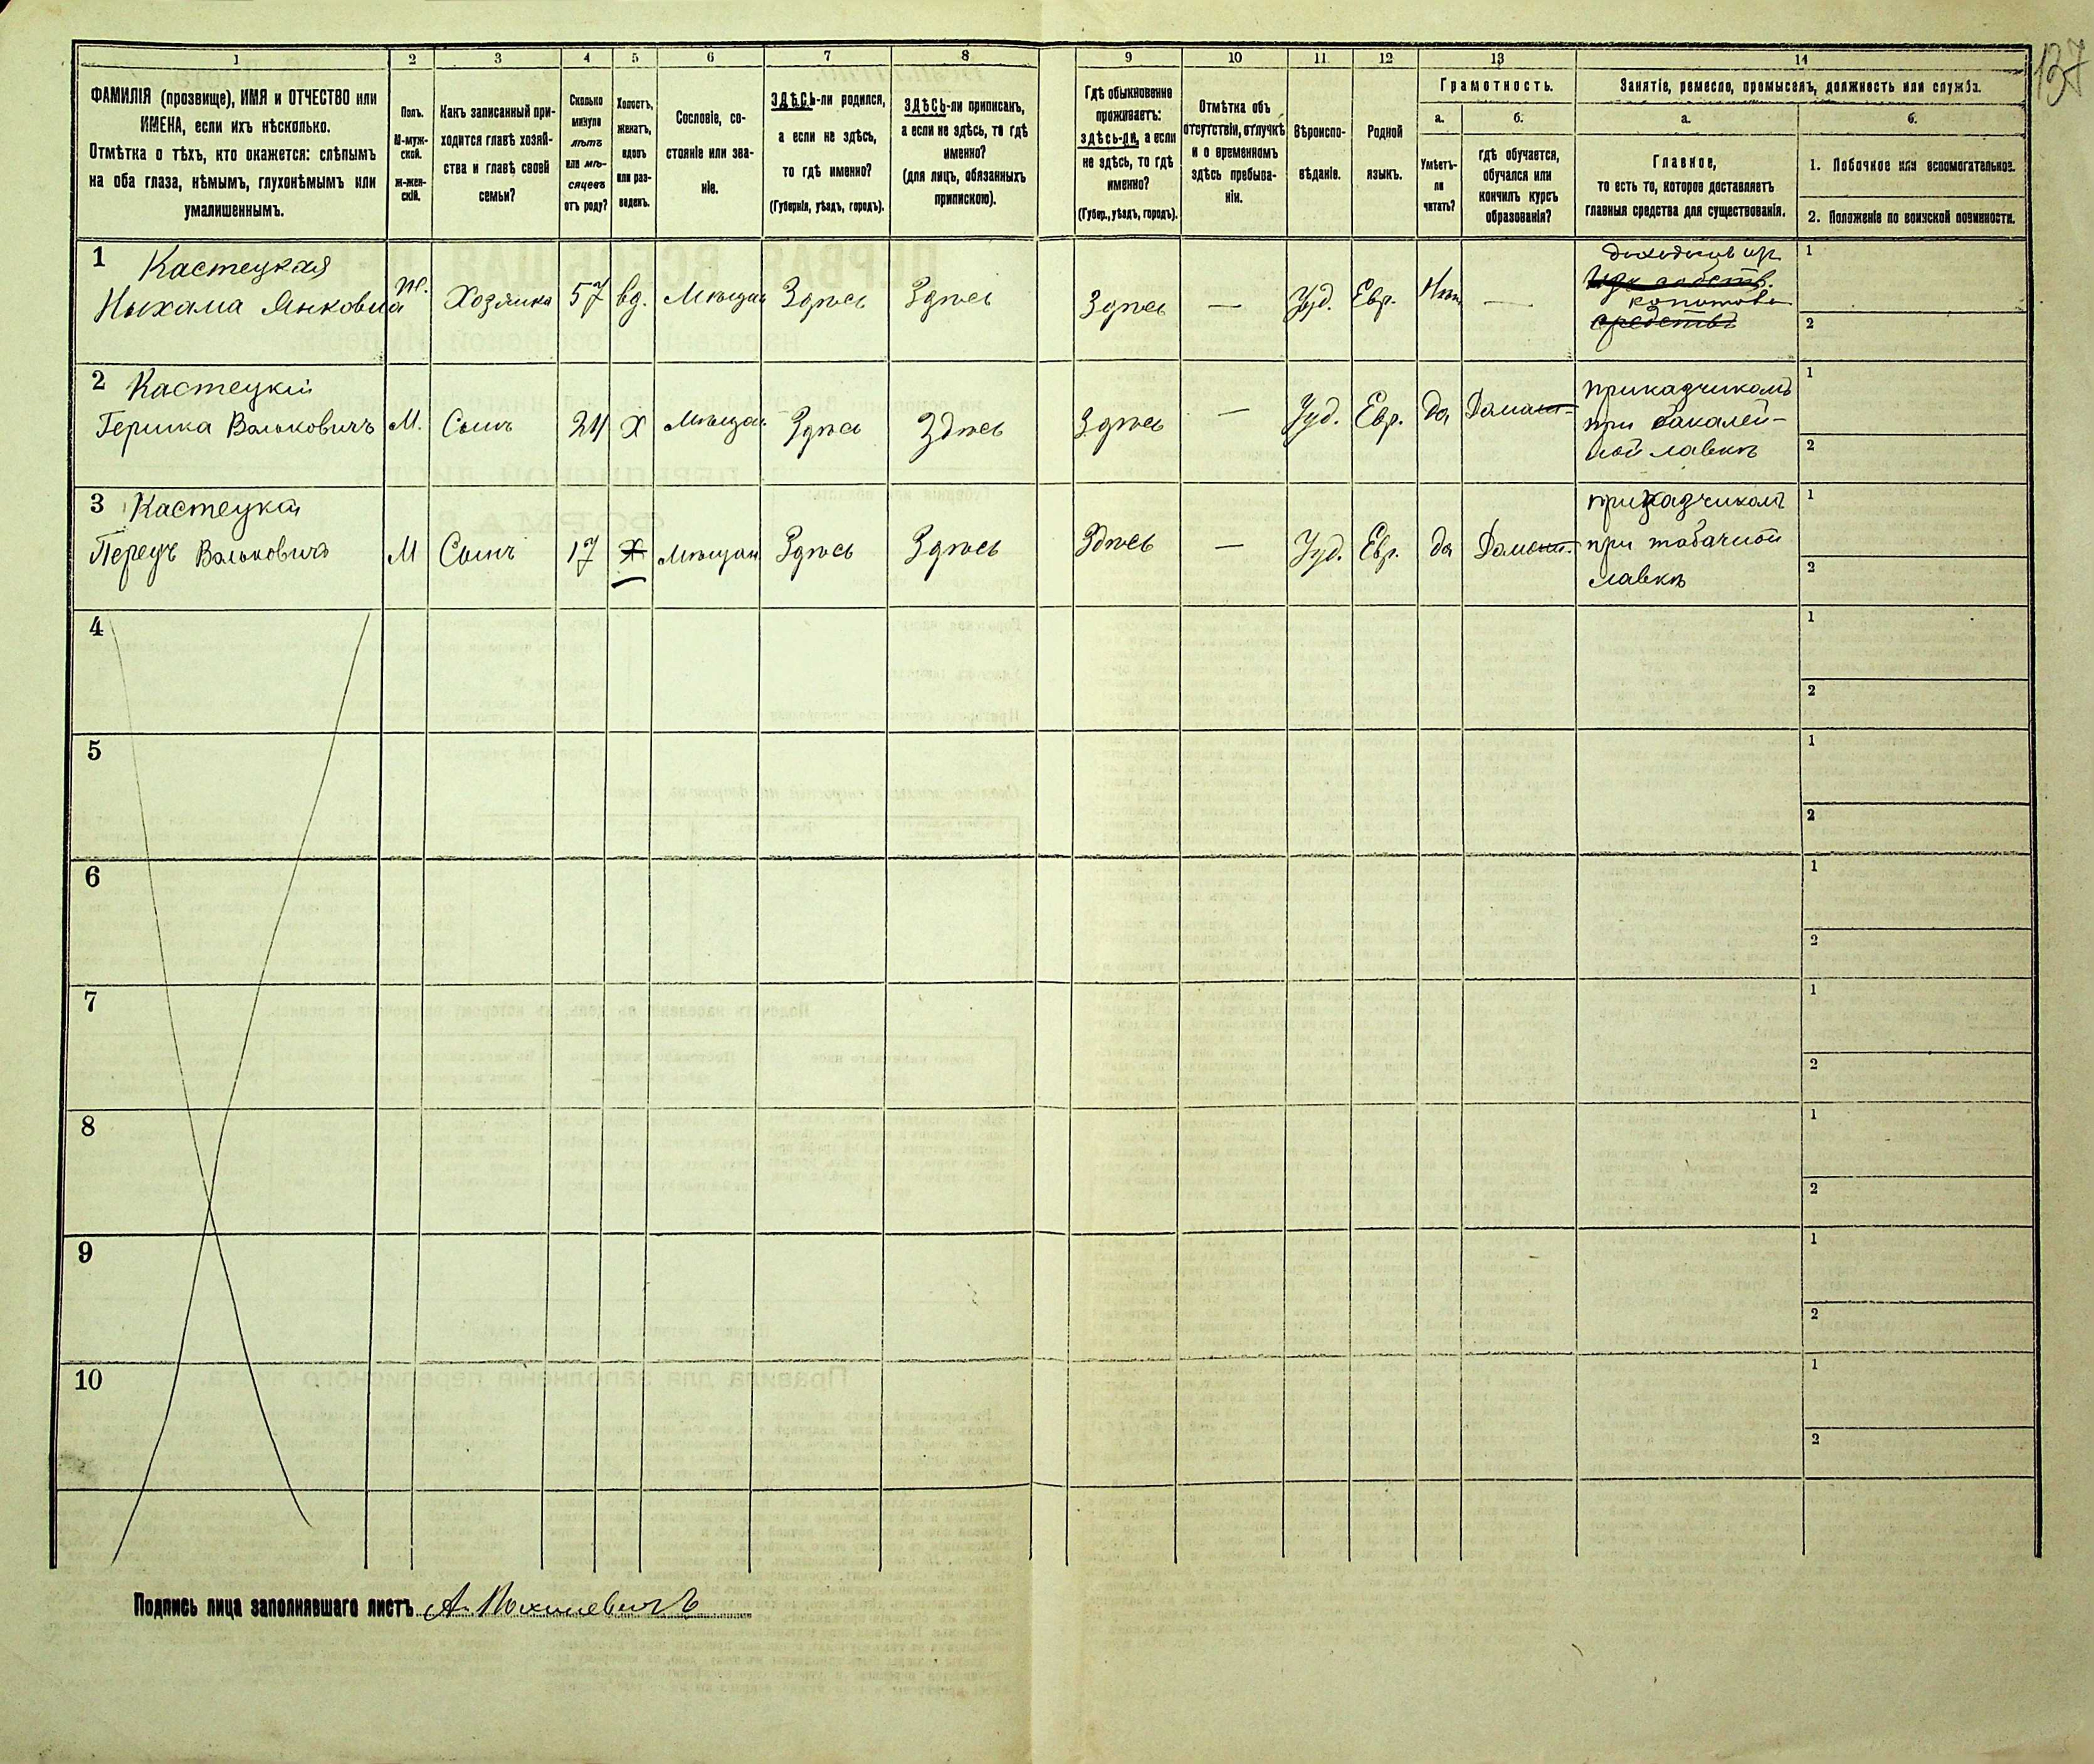 137
1 2 3 4 5 6 7 8 9 10 11 12 13 14
ФАМИЛІЯ (прозвище), ИМЯ и ОТЧЕСТВО или
ИМЕНА, если ихъ нѣсколько.
Отмѣтка о тѣхъ, кто окажется: слѣпымъ
на оба глаза, нѣмымъ, глухонѣмымъ или
умалишеннымъ.
Полъ.
М-муж-
ской.
Ж-жен-
скій.
Какъ записанный при-
ходится главѣ хозяй-
ства и главѣ своей
семьи?
Сколько
минуло
лѣтъ
или мѣ-
сяцевъ
отъ роду?
Холостъ,
женатъ,
вдовъ
или раз-
веденъ.
Сословіе, со-
стояніе или зва-
ніе.
ЗДѢСЬ-ли родился,
а если не здѣсь,
то гдѣ именно?
(Губернія, уѣздъ, городъ).
ЗДѢСЬ-ли приписанъ,
а если не здѣсь, то гдѣ
именно?
(для лицъ, обязанныхъ
припискою).
Гдѣ обыкновенно
проживаетъ:
здѣсь-ли, а если
не здѣсь, то гдѣ
именно?
(Губер., уѣздъ, городъ).
Отмѣтка объ
отсутствіи, отлучкѣ
и о временномъ
здѣсь пребыва-
ніи.
Вѣроиспо-
вѣданіе.
Родной
языкъ.
Грамотность.
а.
Умѣетъ-
ли
читать?
б.
гдѣ обучается,
обучался или
кончилъ курсъ
образованія?
Занятіе, ремесло, промыселъ, должность или служба.
а.
Главное,
то есть то, которое доставляетъ
главныя средства для существованія.
б.
1. Побочное или вспомогательное.
2. Положеніе по воинской повинности.
1 Кастецкая
Ныхама Янковна
Ж. Хозяйка 57 вд. Мѣщан Здѣсь Здѣсь Здѣсь — Іуд. Евр. Нѣтъ —
доходовъ изъ
собств.
средства
1
2
2 Кастецкій
Гершка Вольковичъ М. Сынъ 24 Х Мѣщан Здѣсь Здѣсь Здѣсь — Іуд. Евр. да Домаш.
приказчикомъ
при бакалей-
ной лавкѣ
1
2
3 Кастецкій
Перецъ Вольковичъ М Сынъ 17 Х Мѣщан Здѣсь Здѣсь Здѣсь — Іуд. Евр. да Домаш.
приказчикомъ
при табачной
лавкѣ
1
2
4
1
2
5
1
2
6
1
2
7
1
2
8
1
2
9
1
2
10
1
2
Подпись лица заполнявшаго листъ А.